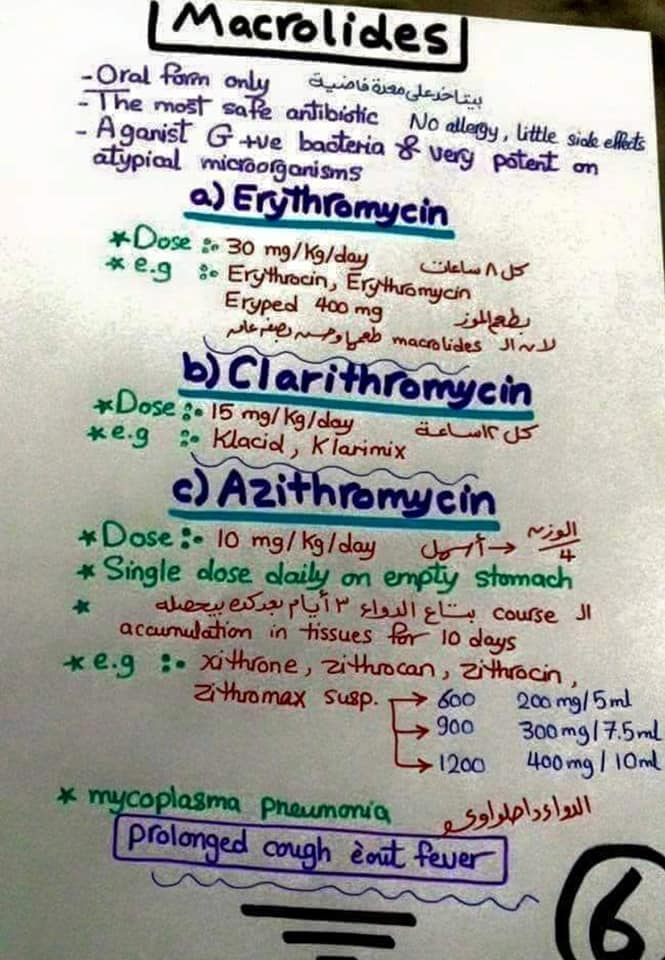 Macrolides
-Oral form only بيتاخد على معدة فاضية
-The most safe antibiotic No allergy, little side effects
- Aganist G +ve bacteria & very potent on
atypical microorganisms
a) Erythromycin
* Dose :• 30 mg/Kg/day كل ٨ ساعات
* e.g :• Erythrocin, Erythromycin
Eryped 400 mg بطعم الموز
لان ال macrolides طعمها وحش بصفه عامه
b) Clarithromycin
* Dose :• 15 mg/Kg/day كل ١٢ ساعة
* e.g :• Klacid, Klarimix
c) Azithromycin
* Dose :• 10 mg/Kg/day أسهل → الوزن/4
* Single dose daily on empty stomach
* ال course بتاع الدواء ٣ أيام بعد كده بيحصله
accumulation in tissues for 10 days
* e.g :• xithrone, zithrocan, zithrocin,
zithromax susp. → 600 200 mg/5ml
→ 900 300 mg/7.5ml
→ 1200 400 mg/10ml
* mycoplasma pneumonia الدواء دا
prolonged cough èout fever
6